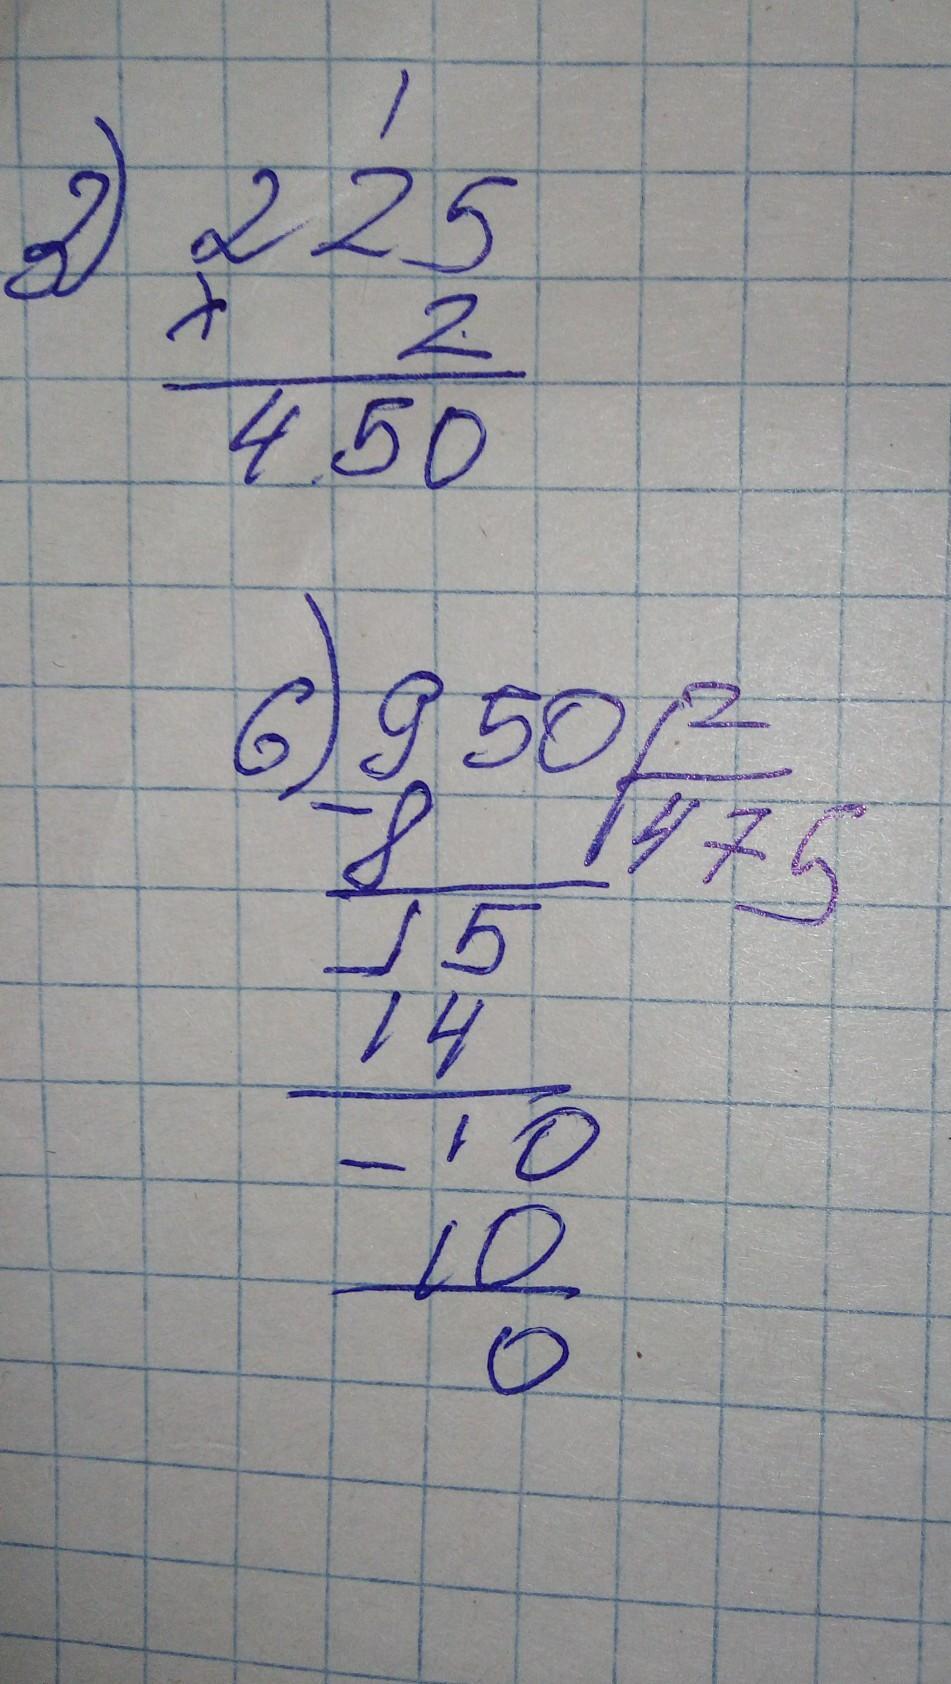 1
2) 225
× 2
450
6) 950 2
- 8 475
- 15
14
- 10
10
0